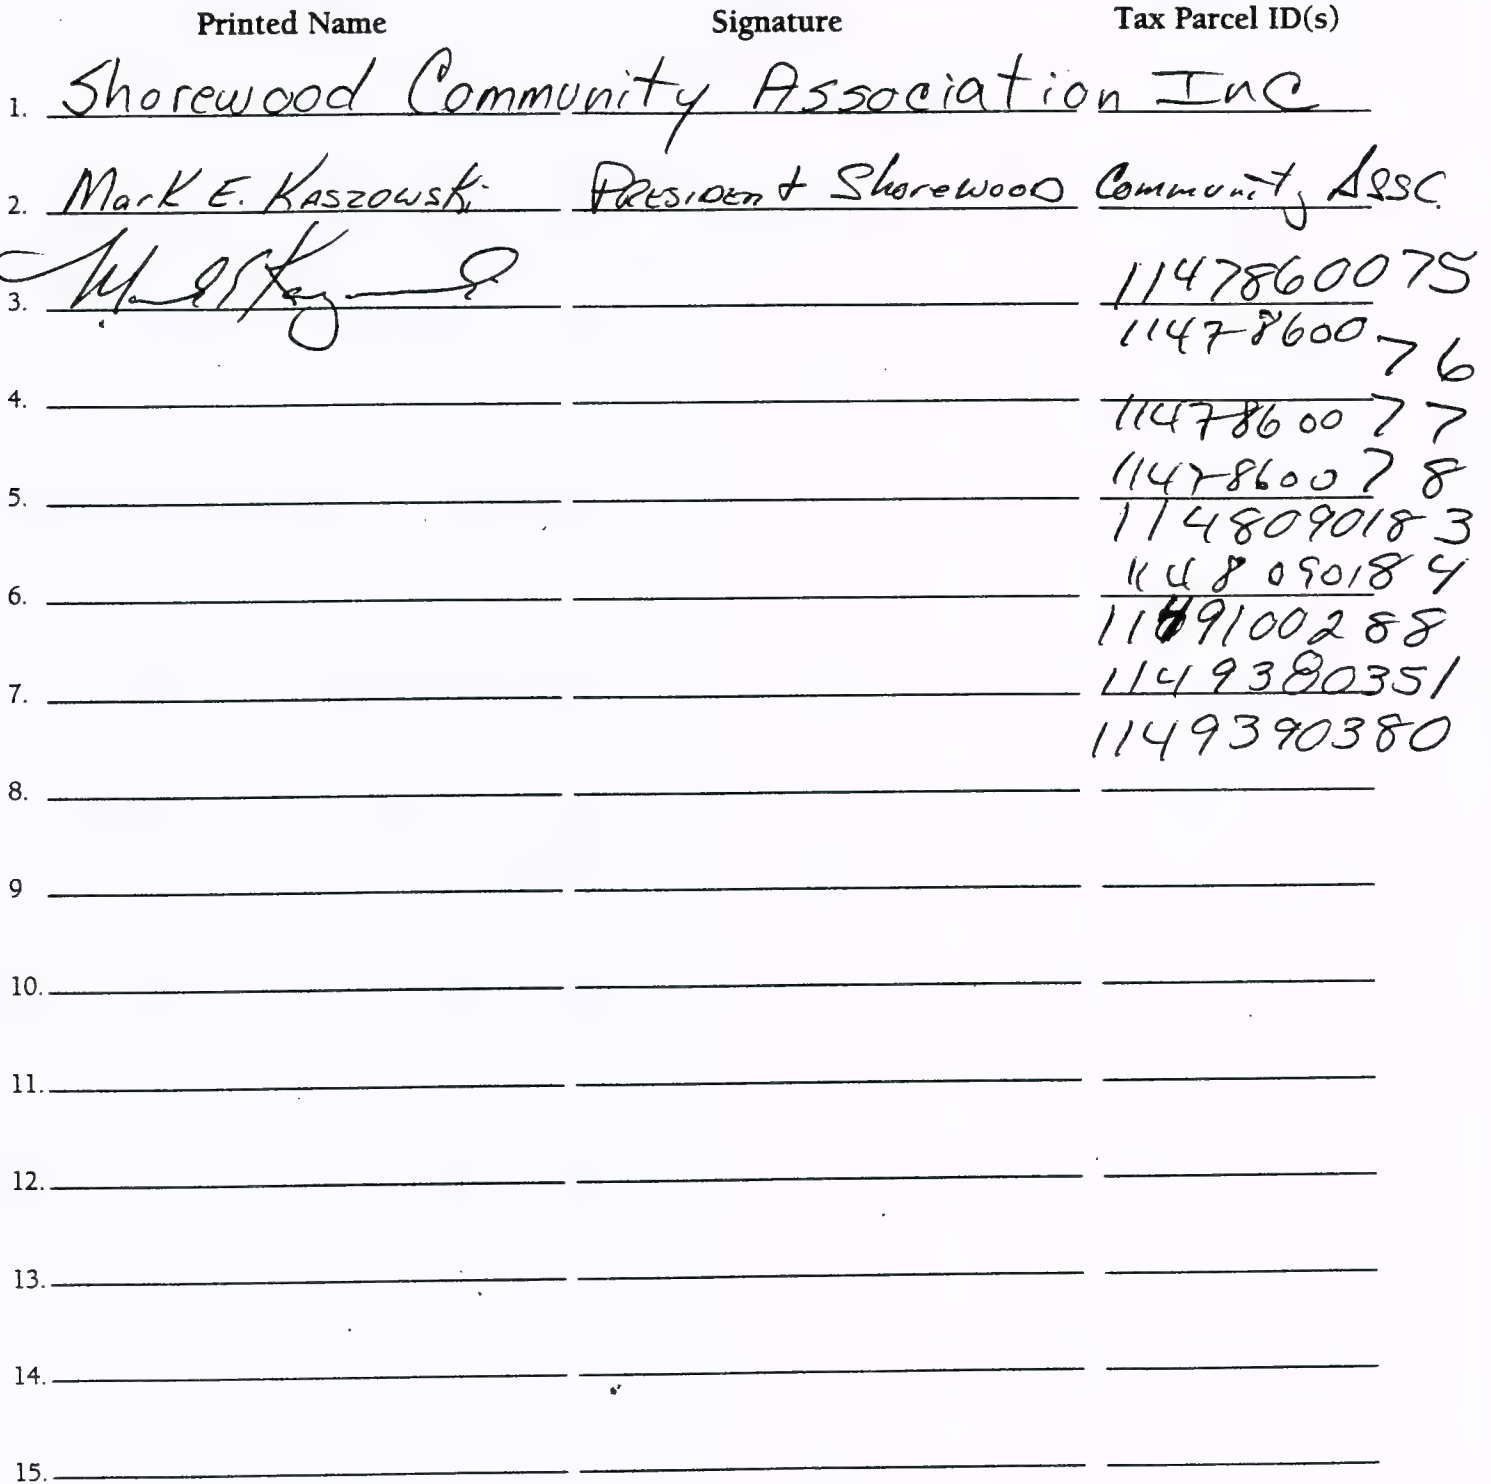 Printed Name Signature Tax Parcel ID(s)
1. Shorewood Community Association Inc
2. Mark E. Kaszowski President Shorewood Community Assc.
3. 1147860075
1147860076
4.
1147860077
1147860078
5.
1148090183
1148090184
6.
1149100288
7. 1149380351
1149390380
8.
9
10.
11.
12.
13.
14.
15.